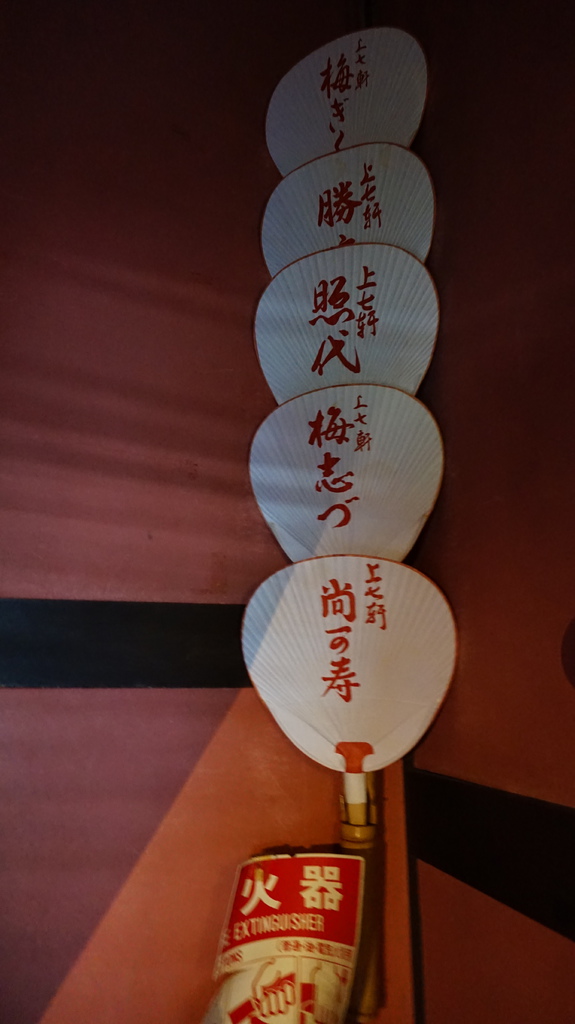 上七軒
梅ぎく
上七軒
勝
上七軒
照代
上七軒
梅志づ
上七軒
尚可寿
火器
EXTINGUISHER